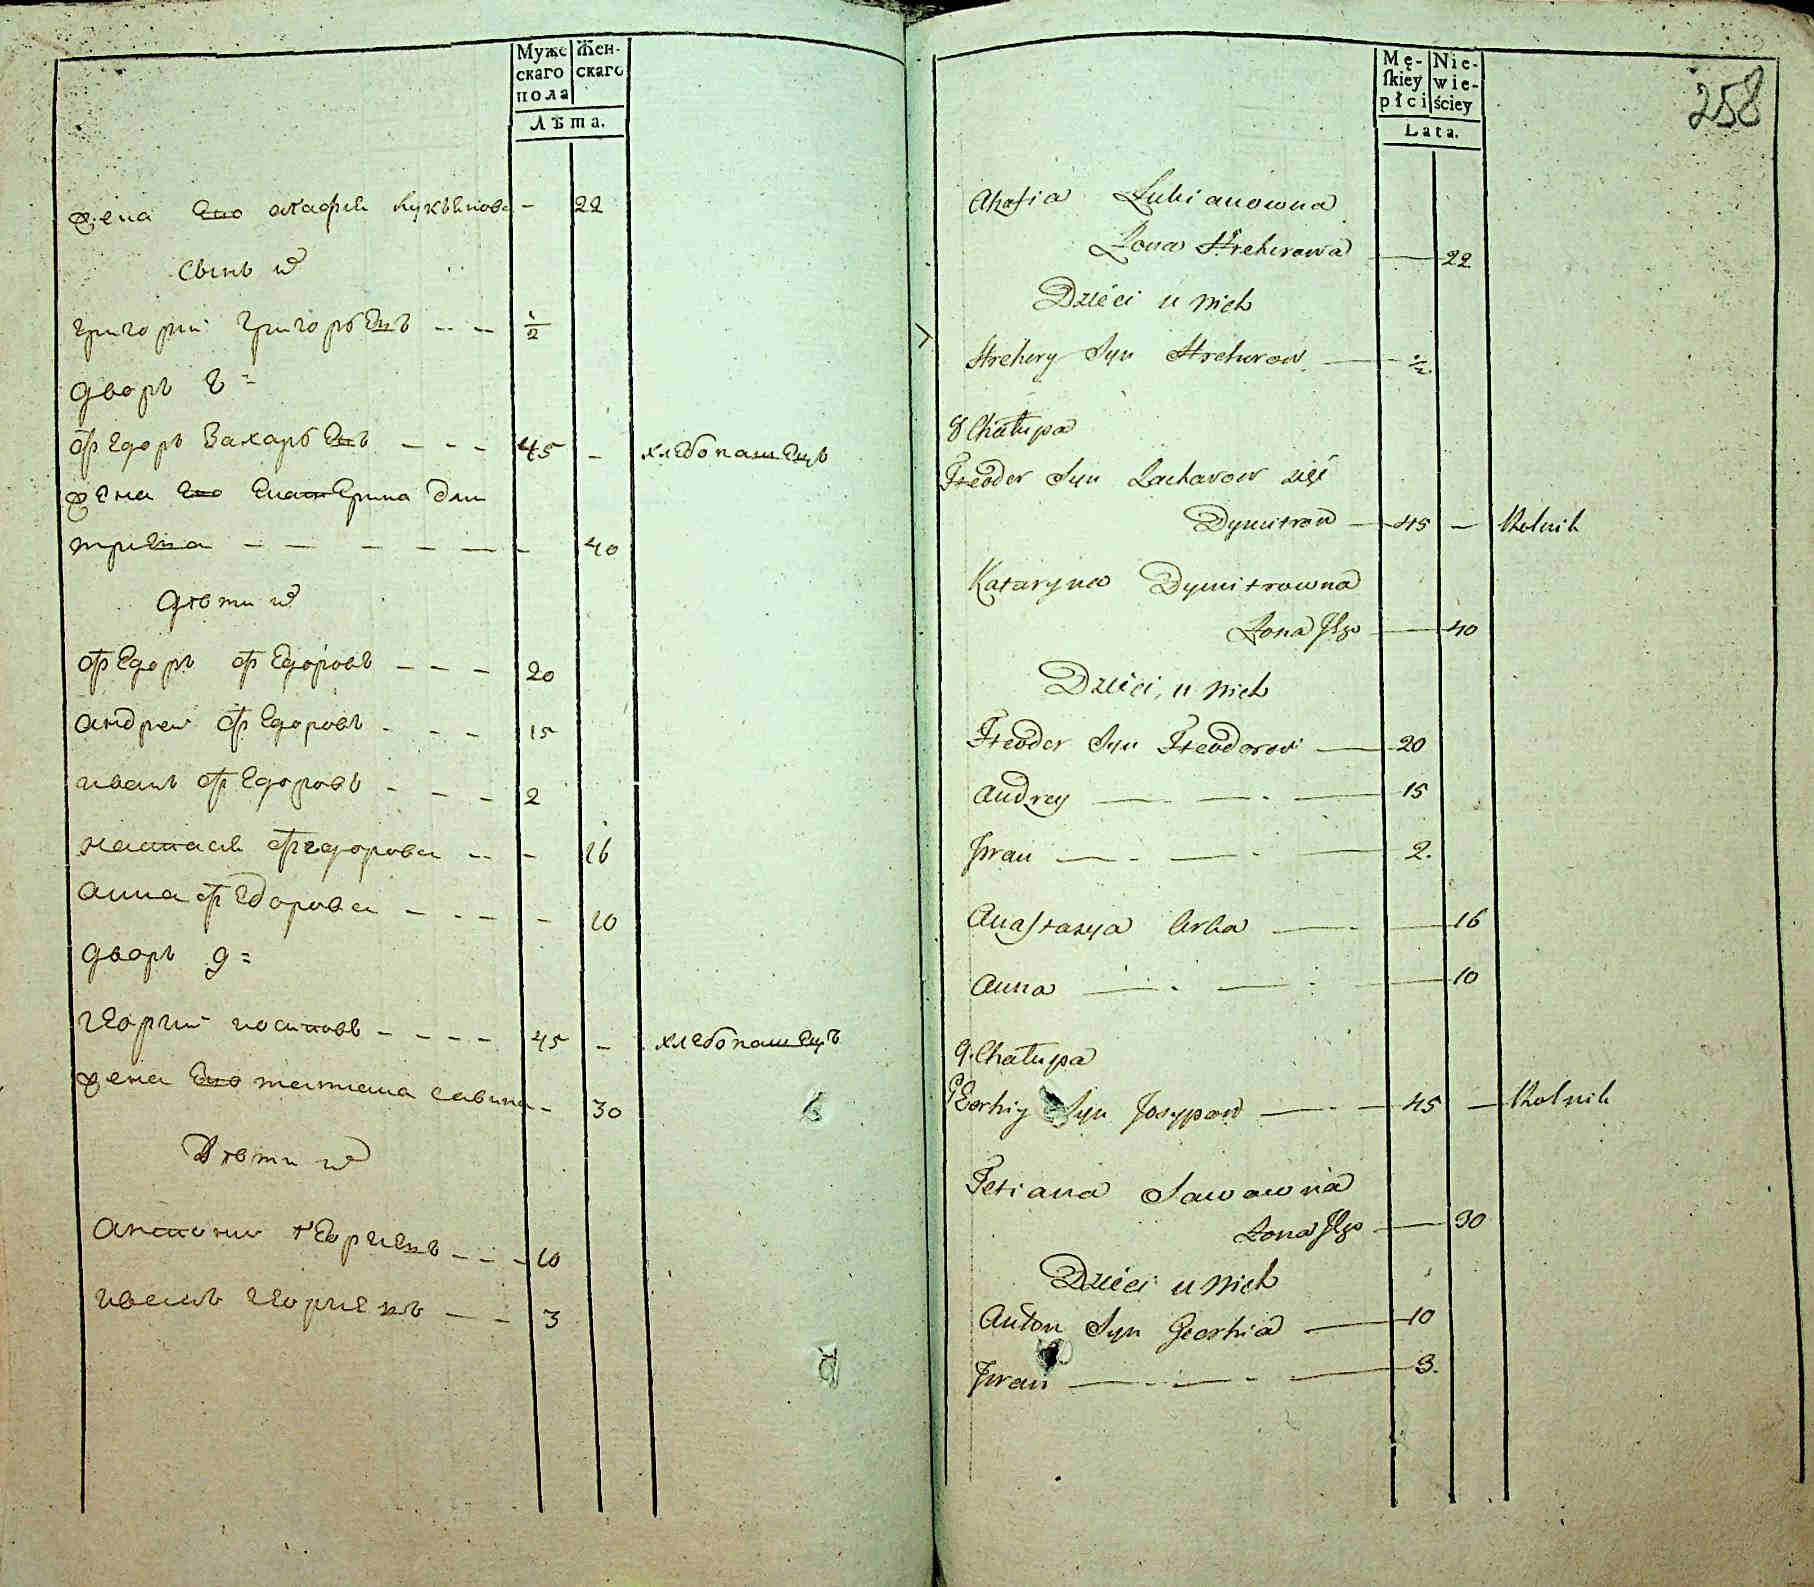 Муже
скаго
пола
Жен-
скаго
Лѣта.
жена его агафия лукьянова - 22
сынъ их
григорий григорьевъ -- - 1/2
дворъ 8=
федоръ Захарьевъ - - - 45 - хлебопашецъ
жена его екатерина дми
триева - - - - - - 40
дѣти их
федоръ федоровъ - - - 20
андрей федоровъ - - - 15
иванъ федоровъ - - - 2
настася федорова -- - 16
анна федорова - - - - 10
дворъ 9=
георгий иосиповъ - - - - 45 - хлебопашецъ
жена его татиана савина - 30
Дѣти их
антоний георгиевъ - - - 10
иванъ георгиевъ - - 3
258
Mę-
skiey
płci
Nie-
wie-
ściey
Lata.
Ahafia Lukianowna
Żona Hrehorowa — 22
Dzieci u nich
Hrehory Syn Hrehorow — 1/2
8 Chałupa
Fteodor Syn Zacharow zięć
Dymitrow — 45 — Rolnik
Kataryna Dymitrowna
Żona Jego — 40
Dzieci u nich
Fteodor Syn Fteodorow — 20
Andrey — - — - — 15
Jwan — - — - — 2.
Anastazya Corka — - — 16
Anna — - — - — 10
9. Chałupa
Georhiy Syn Josypow — - — 45 — Rolnik
Tetiana Sawowna
Żona Jego — 30
Dzieci u nich
Anton Syn Georhia — 10
Jwan — - — - — 3.